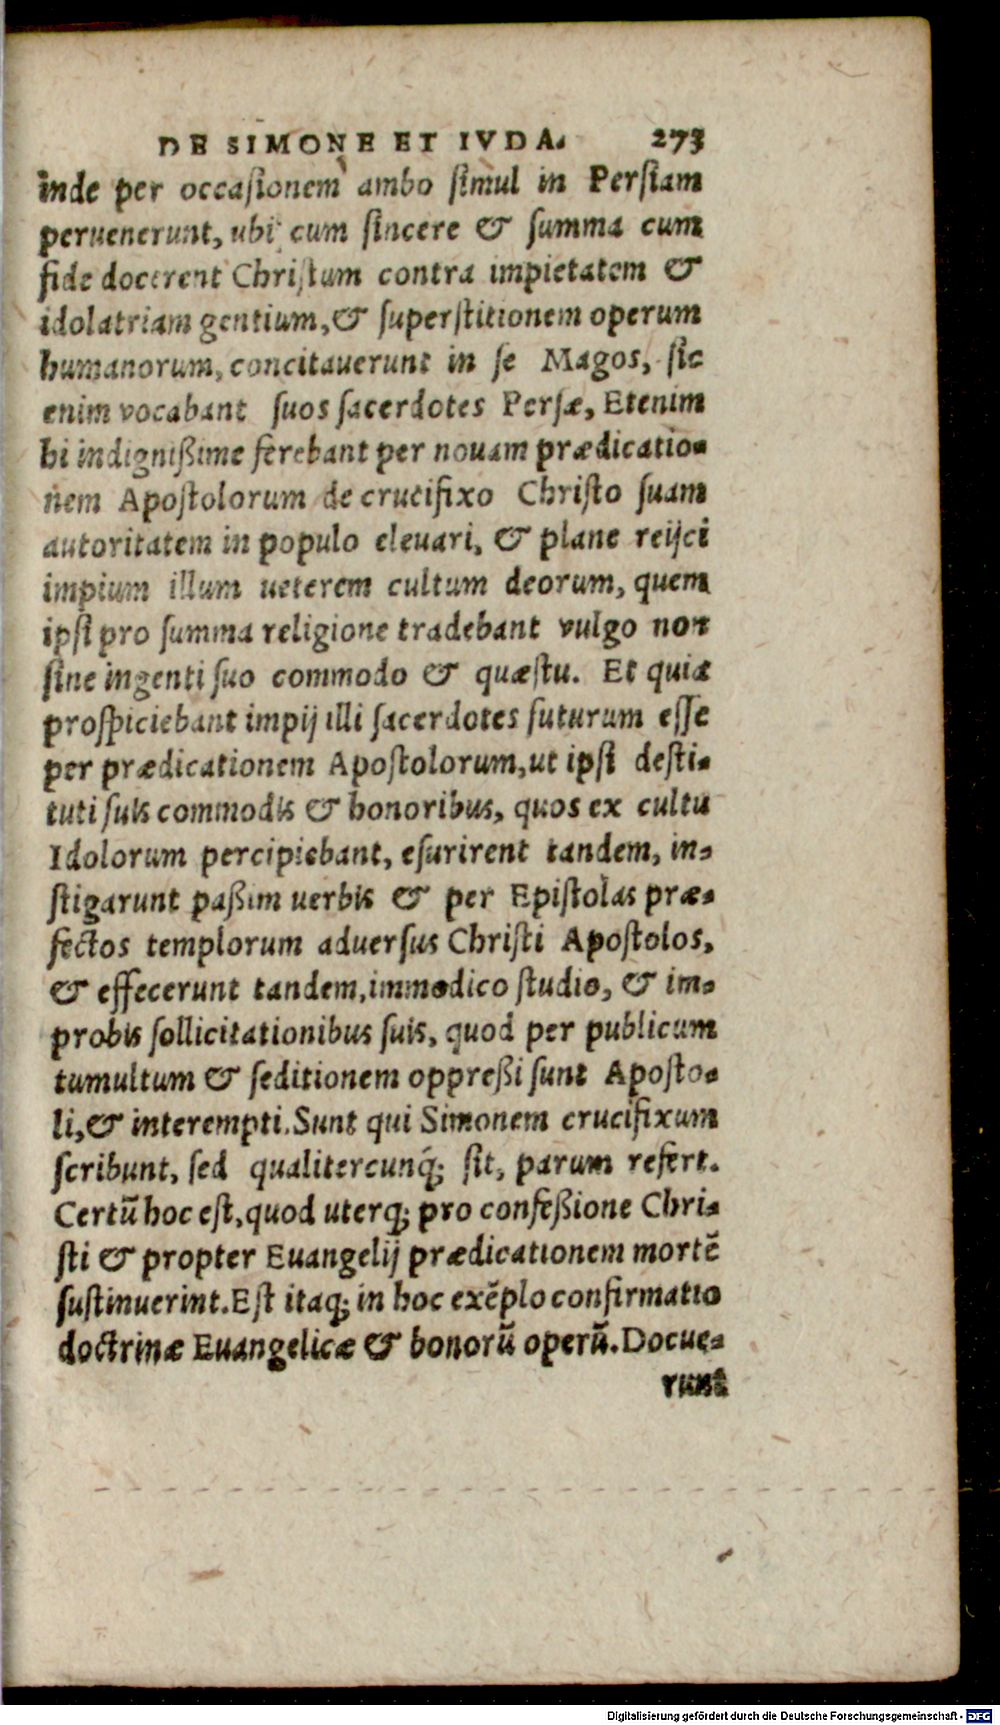 DE SIMONE ET IVDA. 273
inde per occaſionem ambo ſimul in Perſiam
peruenerunt, ubi cum ſincere & ſumma cum
fide docerent Chriſtum contra impietatem &
idolatriam gentium, & ſuperſtitionem operum
humanorum, concitauerunt in ſe Magos, ſic
enim vocabant ſuos ſacerdotes Perſæ, Etenim
hi indignißime ferebant per nouam prædicatio-
nem Apoſtolorum de crucifixo Chriſto ſuam
autoritatem in populo eleuari, & plane reijci
impium illum ueterem cultum deorum, quem
ipſi pro ſumma religione tradebant vulgo non
ſine ingenti ſuo commodo & quæſtu. Et quia
proſpiciebant impij illi ſacerdotes futurum eſſe
per prædicationem Apoſtolorum, ut ipſi deſti-
tuti ſuis commodis & honoribus, quos ex cultu
Idolorum percipiebant, eſurirent tandem, in-
ſtigarunt paßim uerbis & per Epiſtolas præ-
fectos templorum aduerſus Chriſti Apoſtolos,
& effecerunt tandem, immodico ſtudio, & im-
probis ſollicitationibus ſuis, quod per publicum
tumultum & ſeditionem oppreßi ſunt Apoſto-
li, & interempti. Sunt qui Simonem crucifixum
ſcribunt, ſed qualitercunq́; ſit, parum refert.
Certū hoc eſt, quod uterq; pro confeßione Chri-
ſti & propter Euangelij prædicationem mortē
ſuſtinuerint. Eſt itaq; in hoc exēplo confirmatio
doctrinæ Euangelicæ & bonorū operū. Docue-
runt
Digitalisierung gefördert durch die Deutsche Forschungsgemeinschaft - DFG